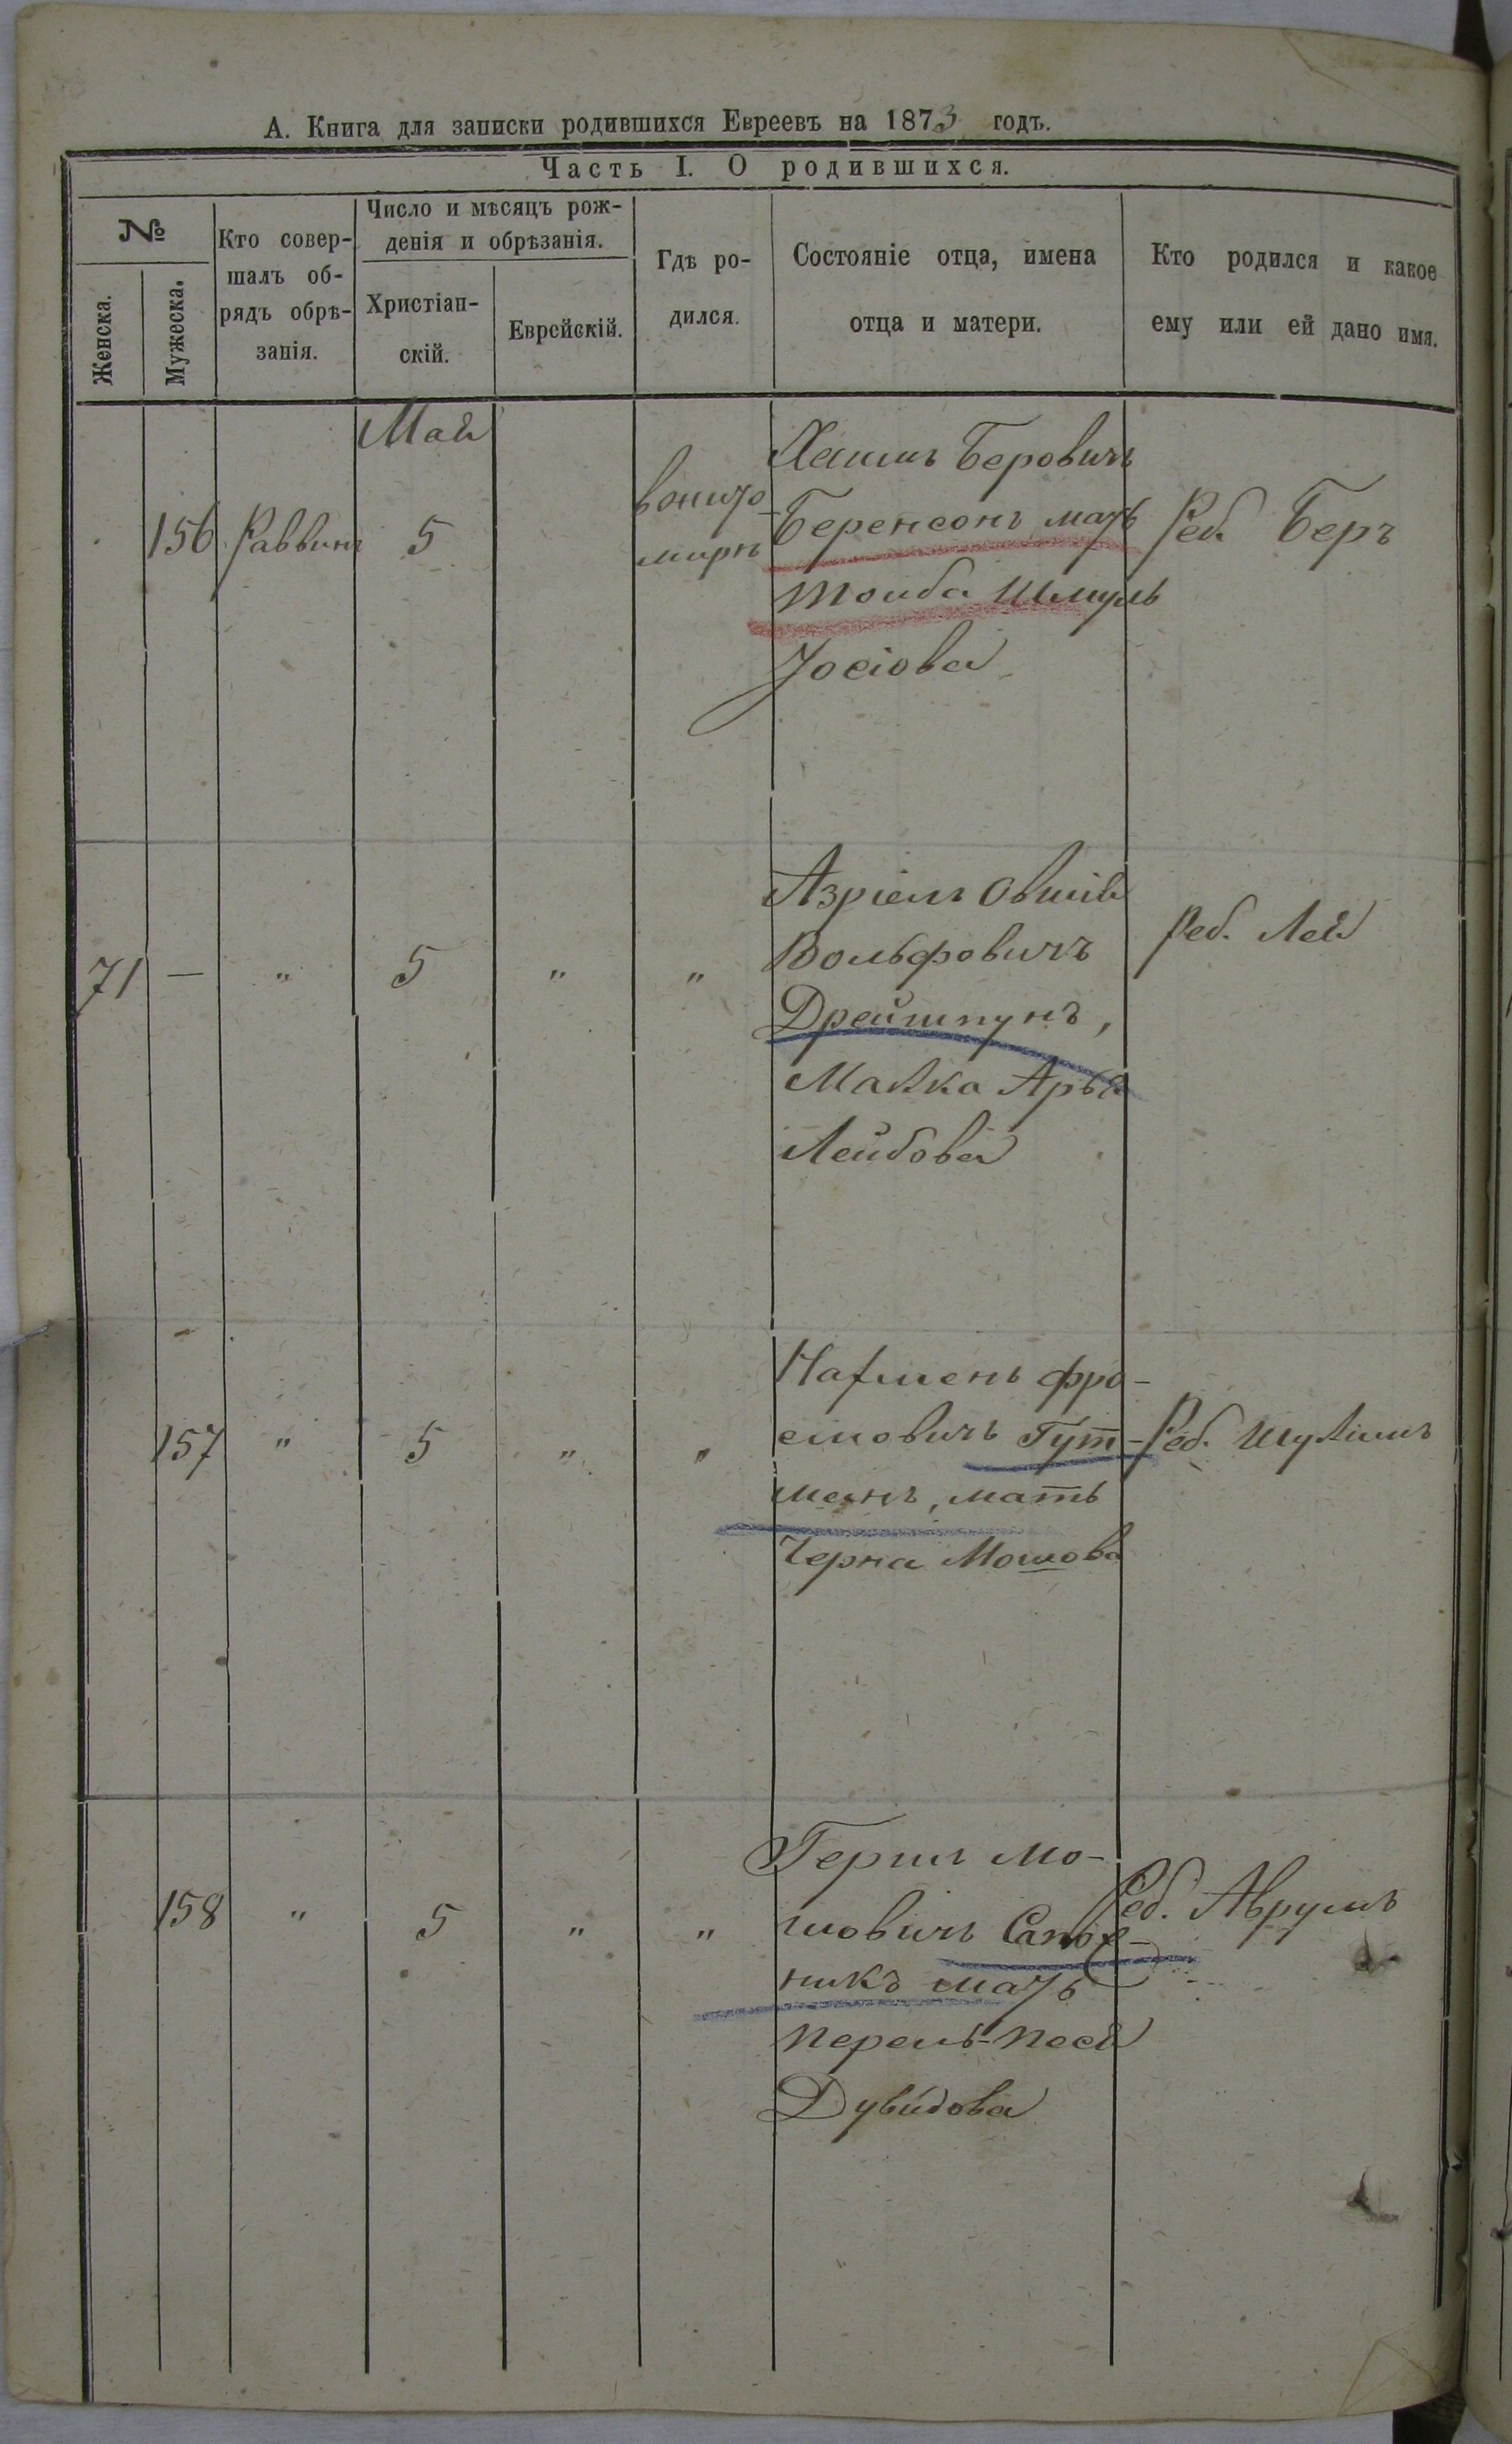 А. Книга для записки родившихся Евреевъ на 1873 годъ.
Часть I. О родившихся.
№
Женска.
Мужеска.
Кто совер-
шалъ об-
рядъ обрѣ-
занія.
Число и мѣсяцъ рож-
денія и обрѣзанія.
Христіан-
скій.
Еврейскій.
Гдѣ ро-
дился.
Состояніе отца, имена
отца и матери.
Кто родился и какое
ему или ей дано имя.
Май
156 Раввинъ 5
в онито-
мирѣ
Хаимъ Беровичъ
Беренсонъ, мать
Тоиба Шмуль
Іосіова
Реб. Беръ
71 — " 5 " "
Азріель Овшій
Вольфовичъ
Дрейшпунъ,
Малка Арья
Лейбова
Реб. Лея
157 " 5 " "
Нахменъ Фро-
емовичъ Гут-
манъ, мать
Черна Мошова
Реб. Шулимъ
158 " 5 " "
Герши Мо-
шовичъ Сапож-
никъ мать
Перель-Песя
Дувидова
Реб. Аврумъ